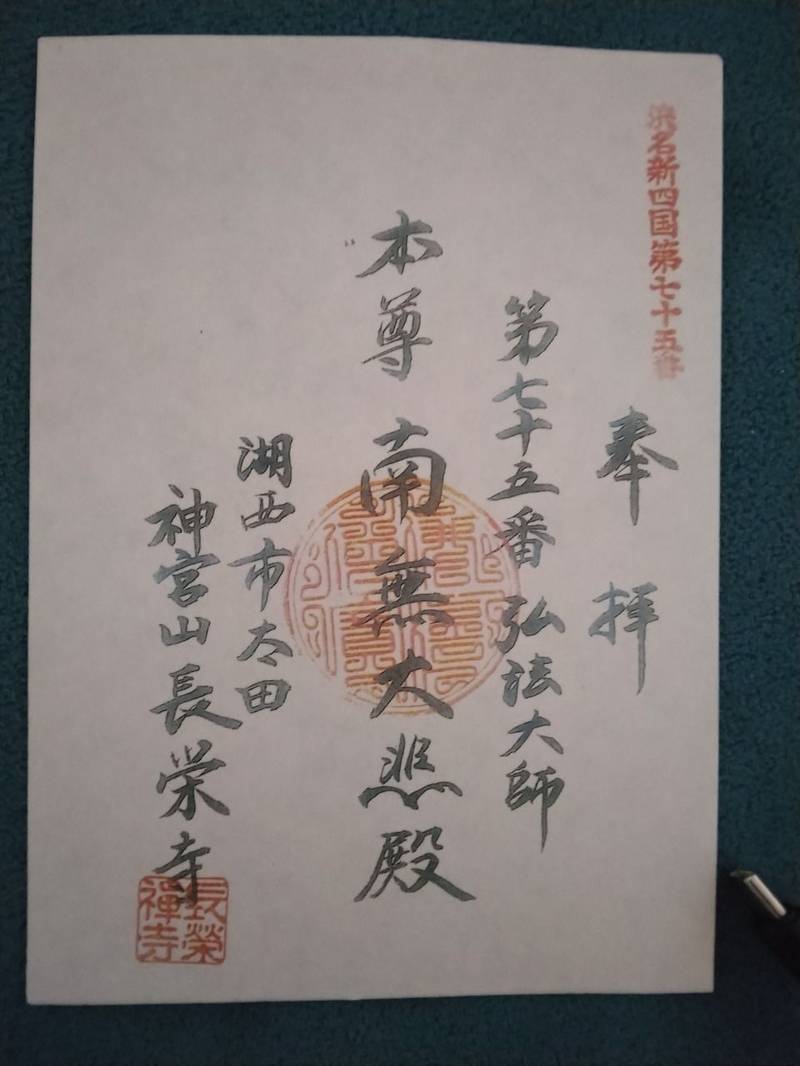 浜名新四国第七十五番
奉拝
第七十五番 弘法大師
本尊 南無大悲殿
湖西市太田
神宮山長栄寺
長榮禅寺